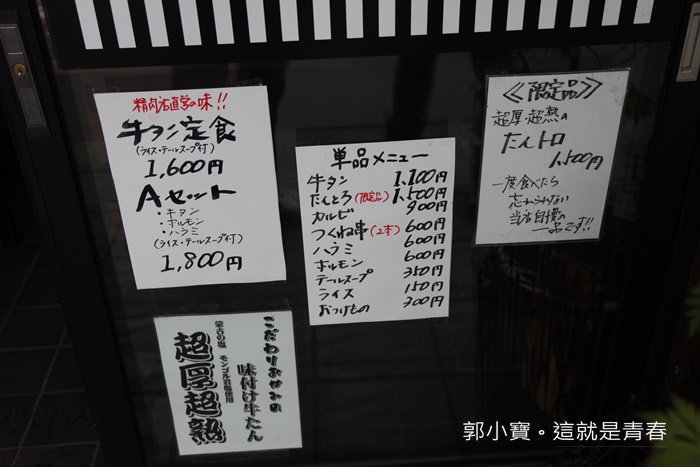 精肉店直営の味!!
牛タン定食
(ライス・テールスープ付)
1,600円
Aセット
・牛タン
・ホルモン
・ハラミ
(ライス・テールスープ付)
1,800円
単品メニュー
牛タン 1,100円
たんとろ(限定品) 1,500円
カルビ 900円
つくね串(2本) 600円
ハラミ 600円
ホルモン 600円
テールスープ 350円
ライス 150円
おつけもの 300円
≪限定品≫
超厚・超熟の
たんトロ
1,500円
一度食べたら
忘れられない
当店自慢の
一品です!!
こだわりおかみの
味付け牛たん
蒙古の塩 モンゴル岩塩使用
超厚超熟
郭小寶。這就是青春